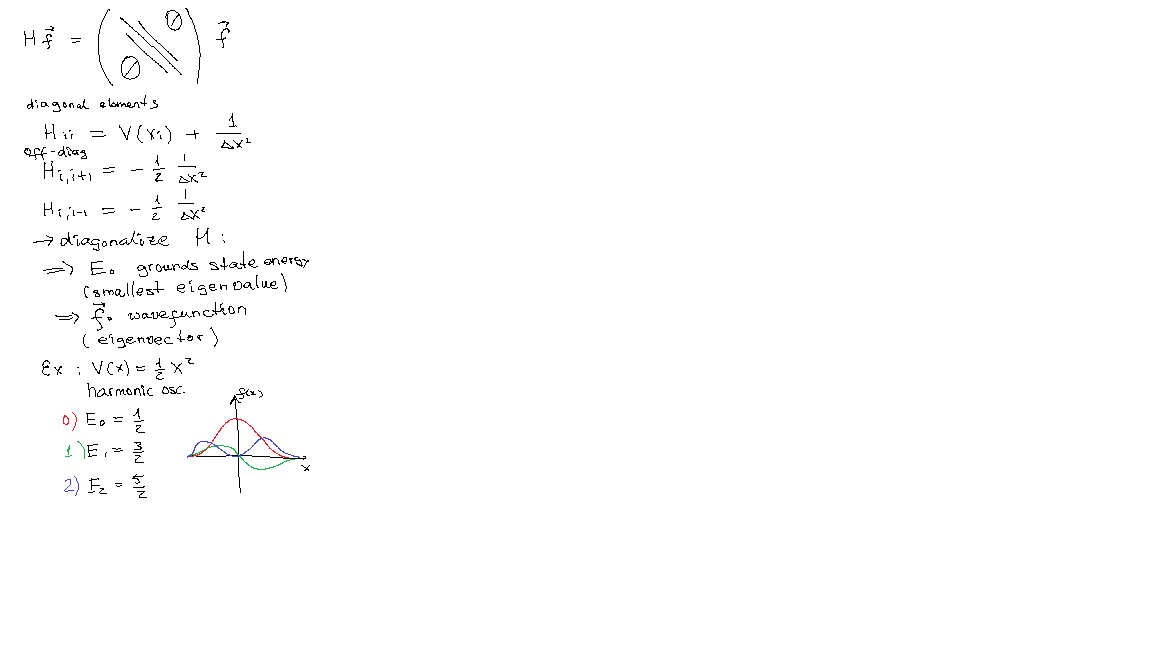 H f⃗ = ( 0 0 ) f⃗
diagonal elements
H_{ii} = V(x_i) + 1/Δx²
off-diag
H_{i,i+1} = - 1/2 1/Δx²
H_{i,i-1} = - 1/2 1/Δx²
→ diagonalize H :
⇒ E₀ grounds state energy
(smallest eigenvalue)
⇒ f⃗₀ wavefunction
(eigenvector)
Ex : V(x) = 1/2 x²
harmonic osc.
f(x)
0) E₀ = 1/2
1) E₁ = 3/2
x
2) E₂ = 5/2